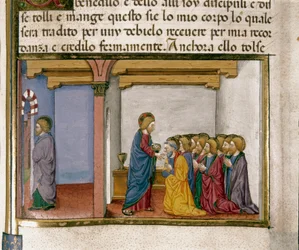 benedilo e dello alli soy discipuli e di
se tolli e mange questo sie lo mio corpo lo quale
sera tradito per vuy debielo recevere per mia recor
danza e credilo fermamente. Anchora ello tolse